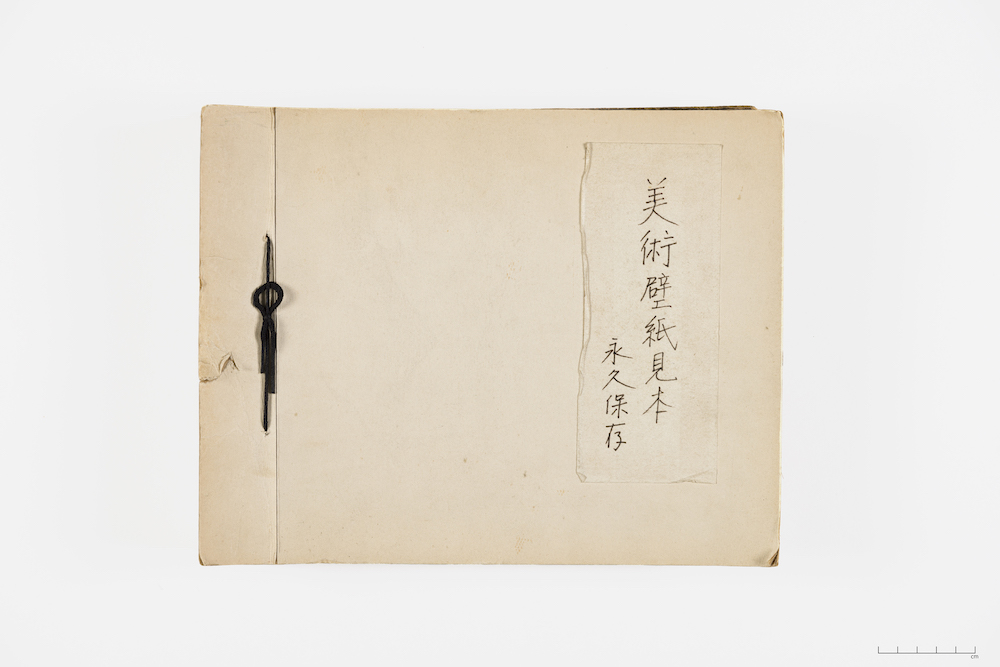 美術壁紙見本
永久保存
cm